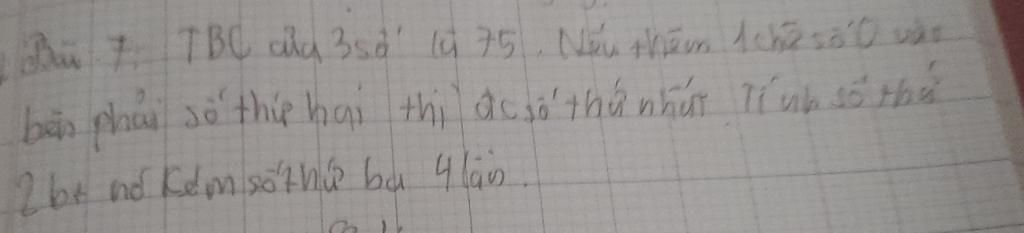 Bài 7: TBC của 3 số là 75. Nếu thêm 1 chữ số 0 vào
bên phải số thứ hai thì đc số thứ nhất. Tính số thứ
2 bt nó kém số thứ ba 4 lần.